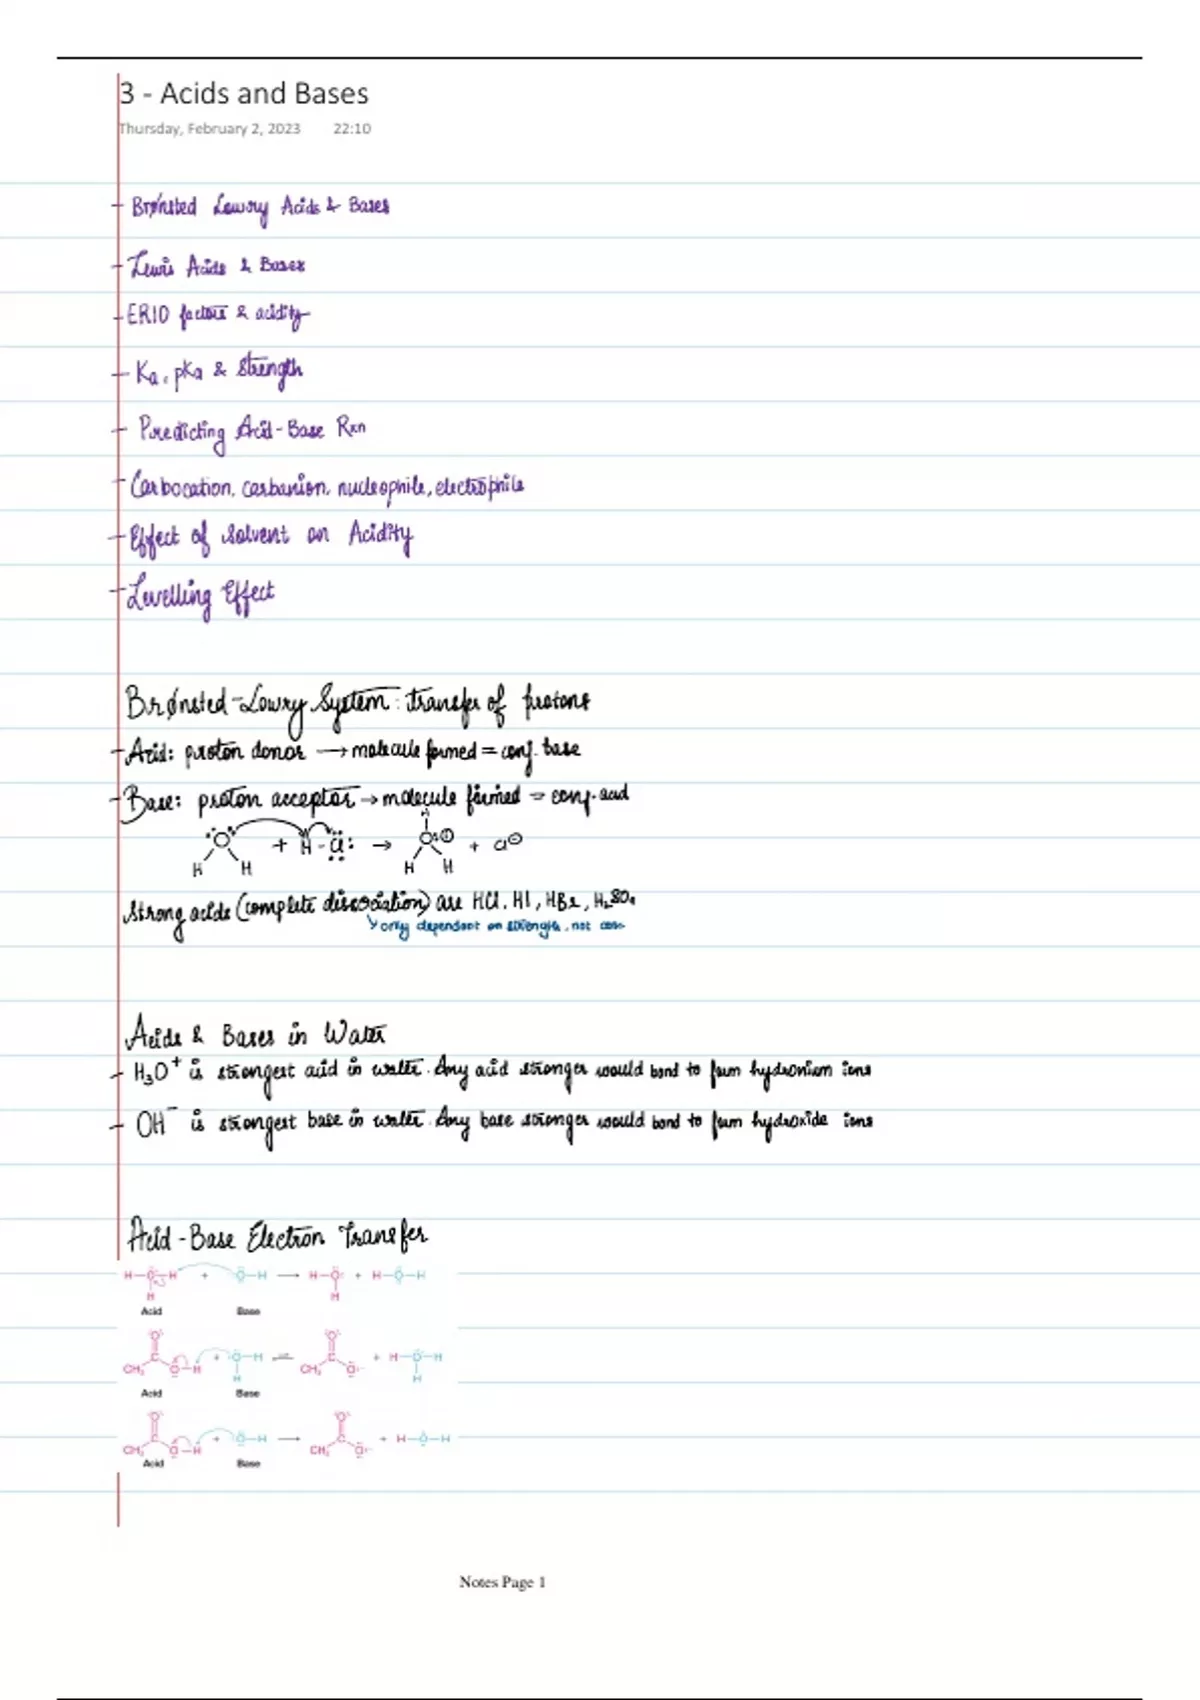 3 - Acids and Bases
Thursday, February 2, 2023 22:10
- Brønsted Lowry Acids & Bases
- Lewis Acids & Bases
- ERIO factors & acidity
- Ka, pKa & strength
- Predicting Acid-Base Rxn
- Carbocation, carbanion, nucleophile, electrophile
- Effect of Solvent on Acidity
- Levelling Effect
Brønsted-Lowry System: transfer of protons
- Acid: proton donor → molecule formed = conj. base
- Base: proton acceptor → molecule formed = conj. acid
H
O + H - Cl: → O: ⊕ + Cl⊖
H H H H
Strong acids (complete dissociation) are HCl, HI, HBr, H₂SO₄
↘ only dependent on strength, not conc
Acids & Bases in Water
- H₃O⁺ is strongest acid in water. Any acid stronger would bond to form hydronium ions
- OH⁻ is strongest base in water. Any base stronger would bond to form hydroxide ions
Acid-Base Electron Transfer
H—O—H + O—H → H—O: + H—O—H
H H
Acid Base
O O
C C
CH₃ O—H + O—H ⇌ CH₃ O:⁻ + H—O—H
H H
Acid Base
O O
C C
CH₃ O—H + O—H → CH₃ O:⁻ + H—O—H
Acid Base
Notes Page 1